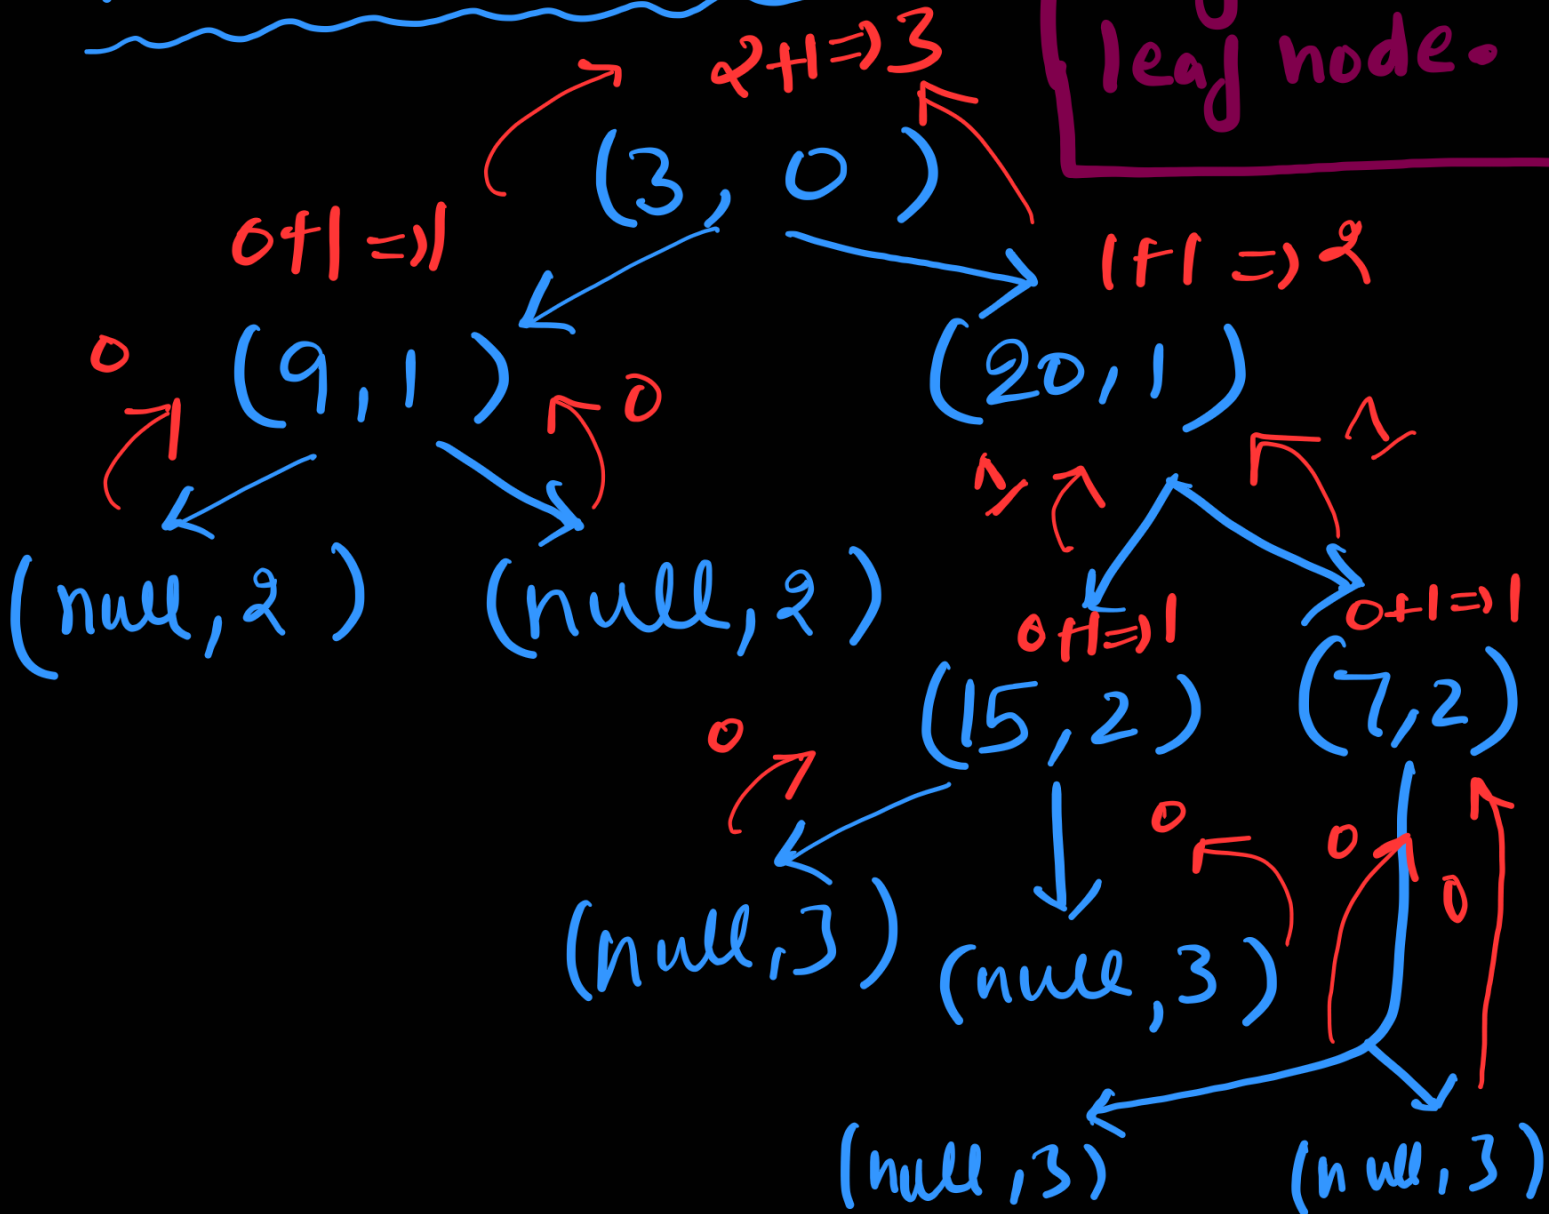 leaf node.
2+1=>3
(3, 0)
0+1=>1
1+1=>2
(9,1)
(20,1)
0
0
1
1
(null,2)
(null,2)
0+1=>1
0+1=>1
(15,2)
(7,2)
0
0
0
0
(null,3)
(null,3)
(null,3)
(null,3)